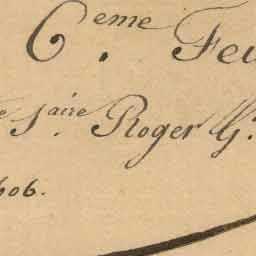 6.eme Feu
e 1.aire Roger G.
606.